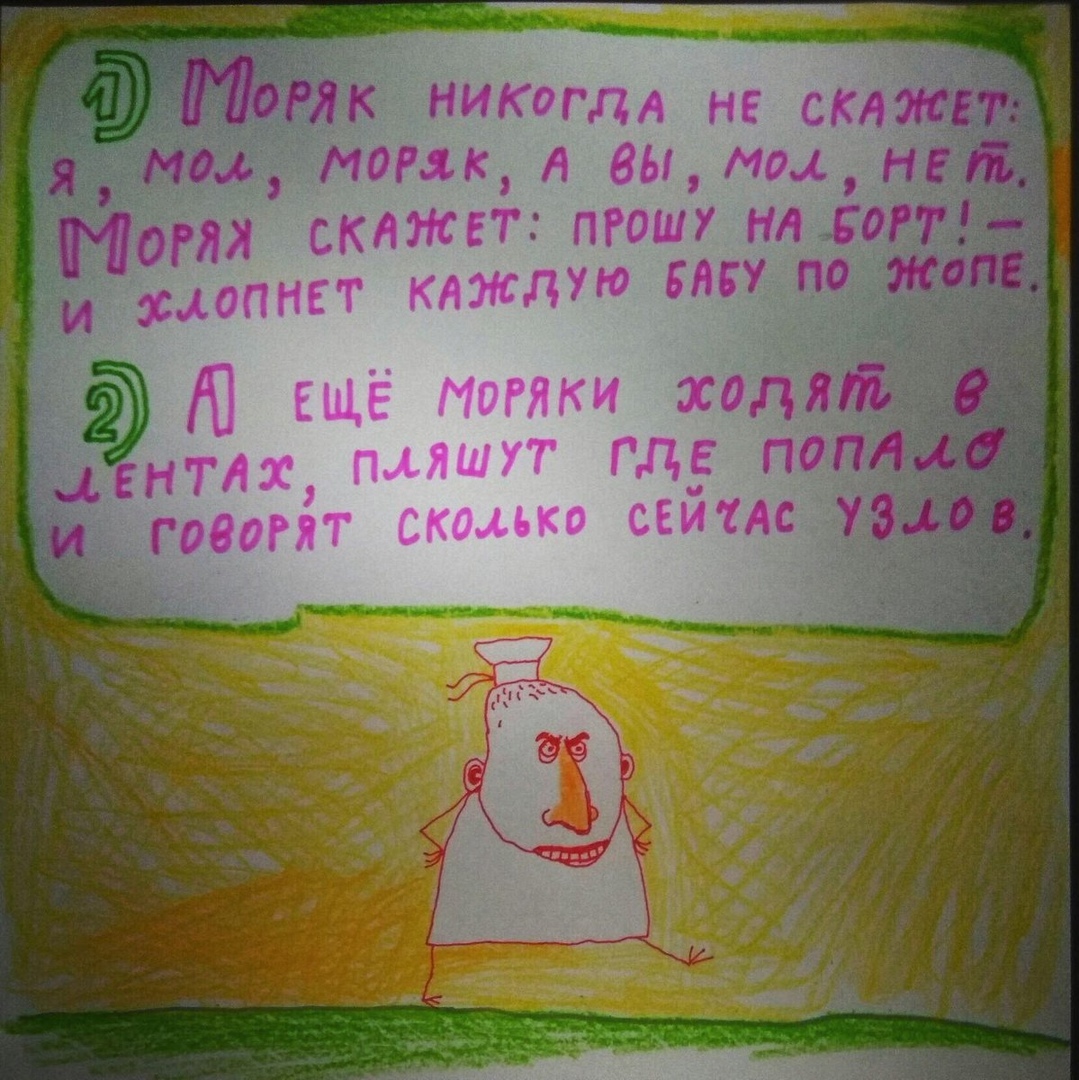 1) Моряк никогда не скажет:
я, мол, моряк, а вы, мол, нет.
Моряк скажет: прошу на борт! —
и хлопнет каждую бабу по жопе.
2) А ещё моряки ходят в
лентах, пляшут где попало
и говорят сколько сейчас узлов.